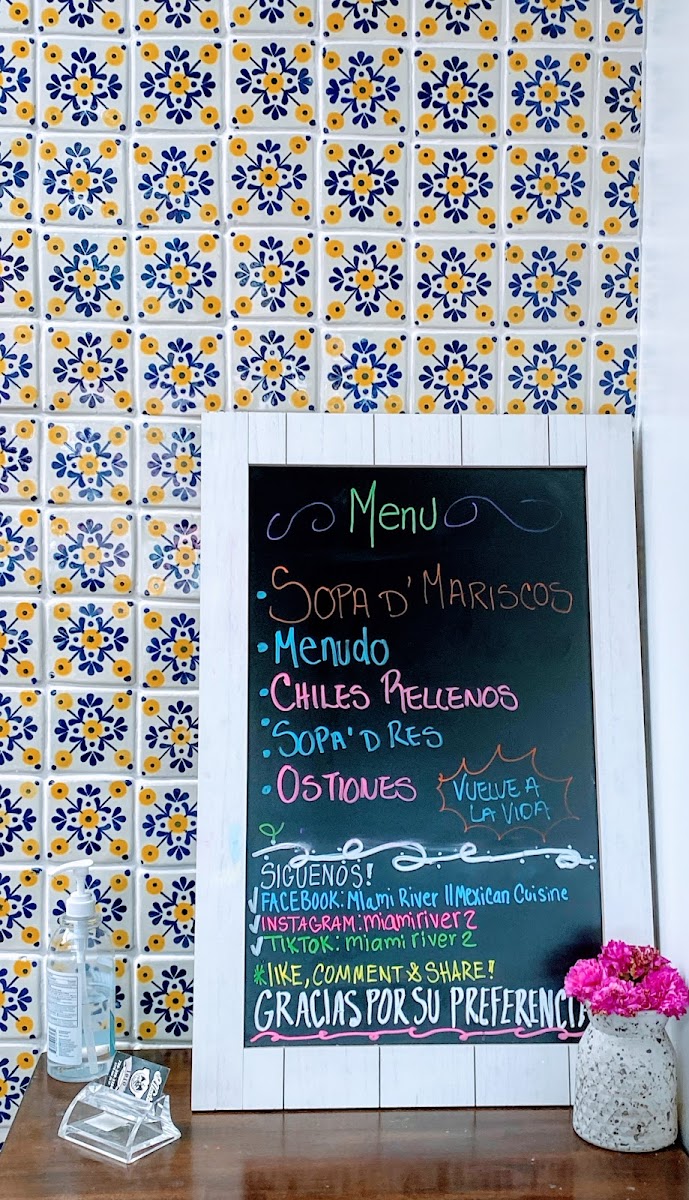 Menu
• SOPA D' MARISCOS
• Menudo
• CHILES RELLENOS
• SOPA'D RES
• OSTIONES
VUELVE A
LA VIDA
SIGUENOS!
✓ FACEBOOK: Miami River II Mexican Cuisine
✓ INSTAGRAM: miamiriver2
✓ TIKTOK: miami river 2
* LIKE, COMMENT & SHARE!
GRACIAS POR SU PREFERENCIA